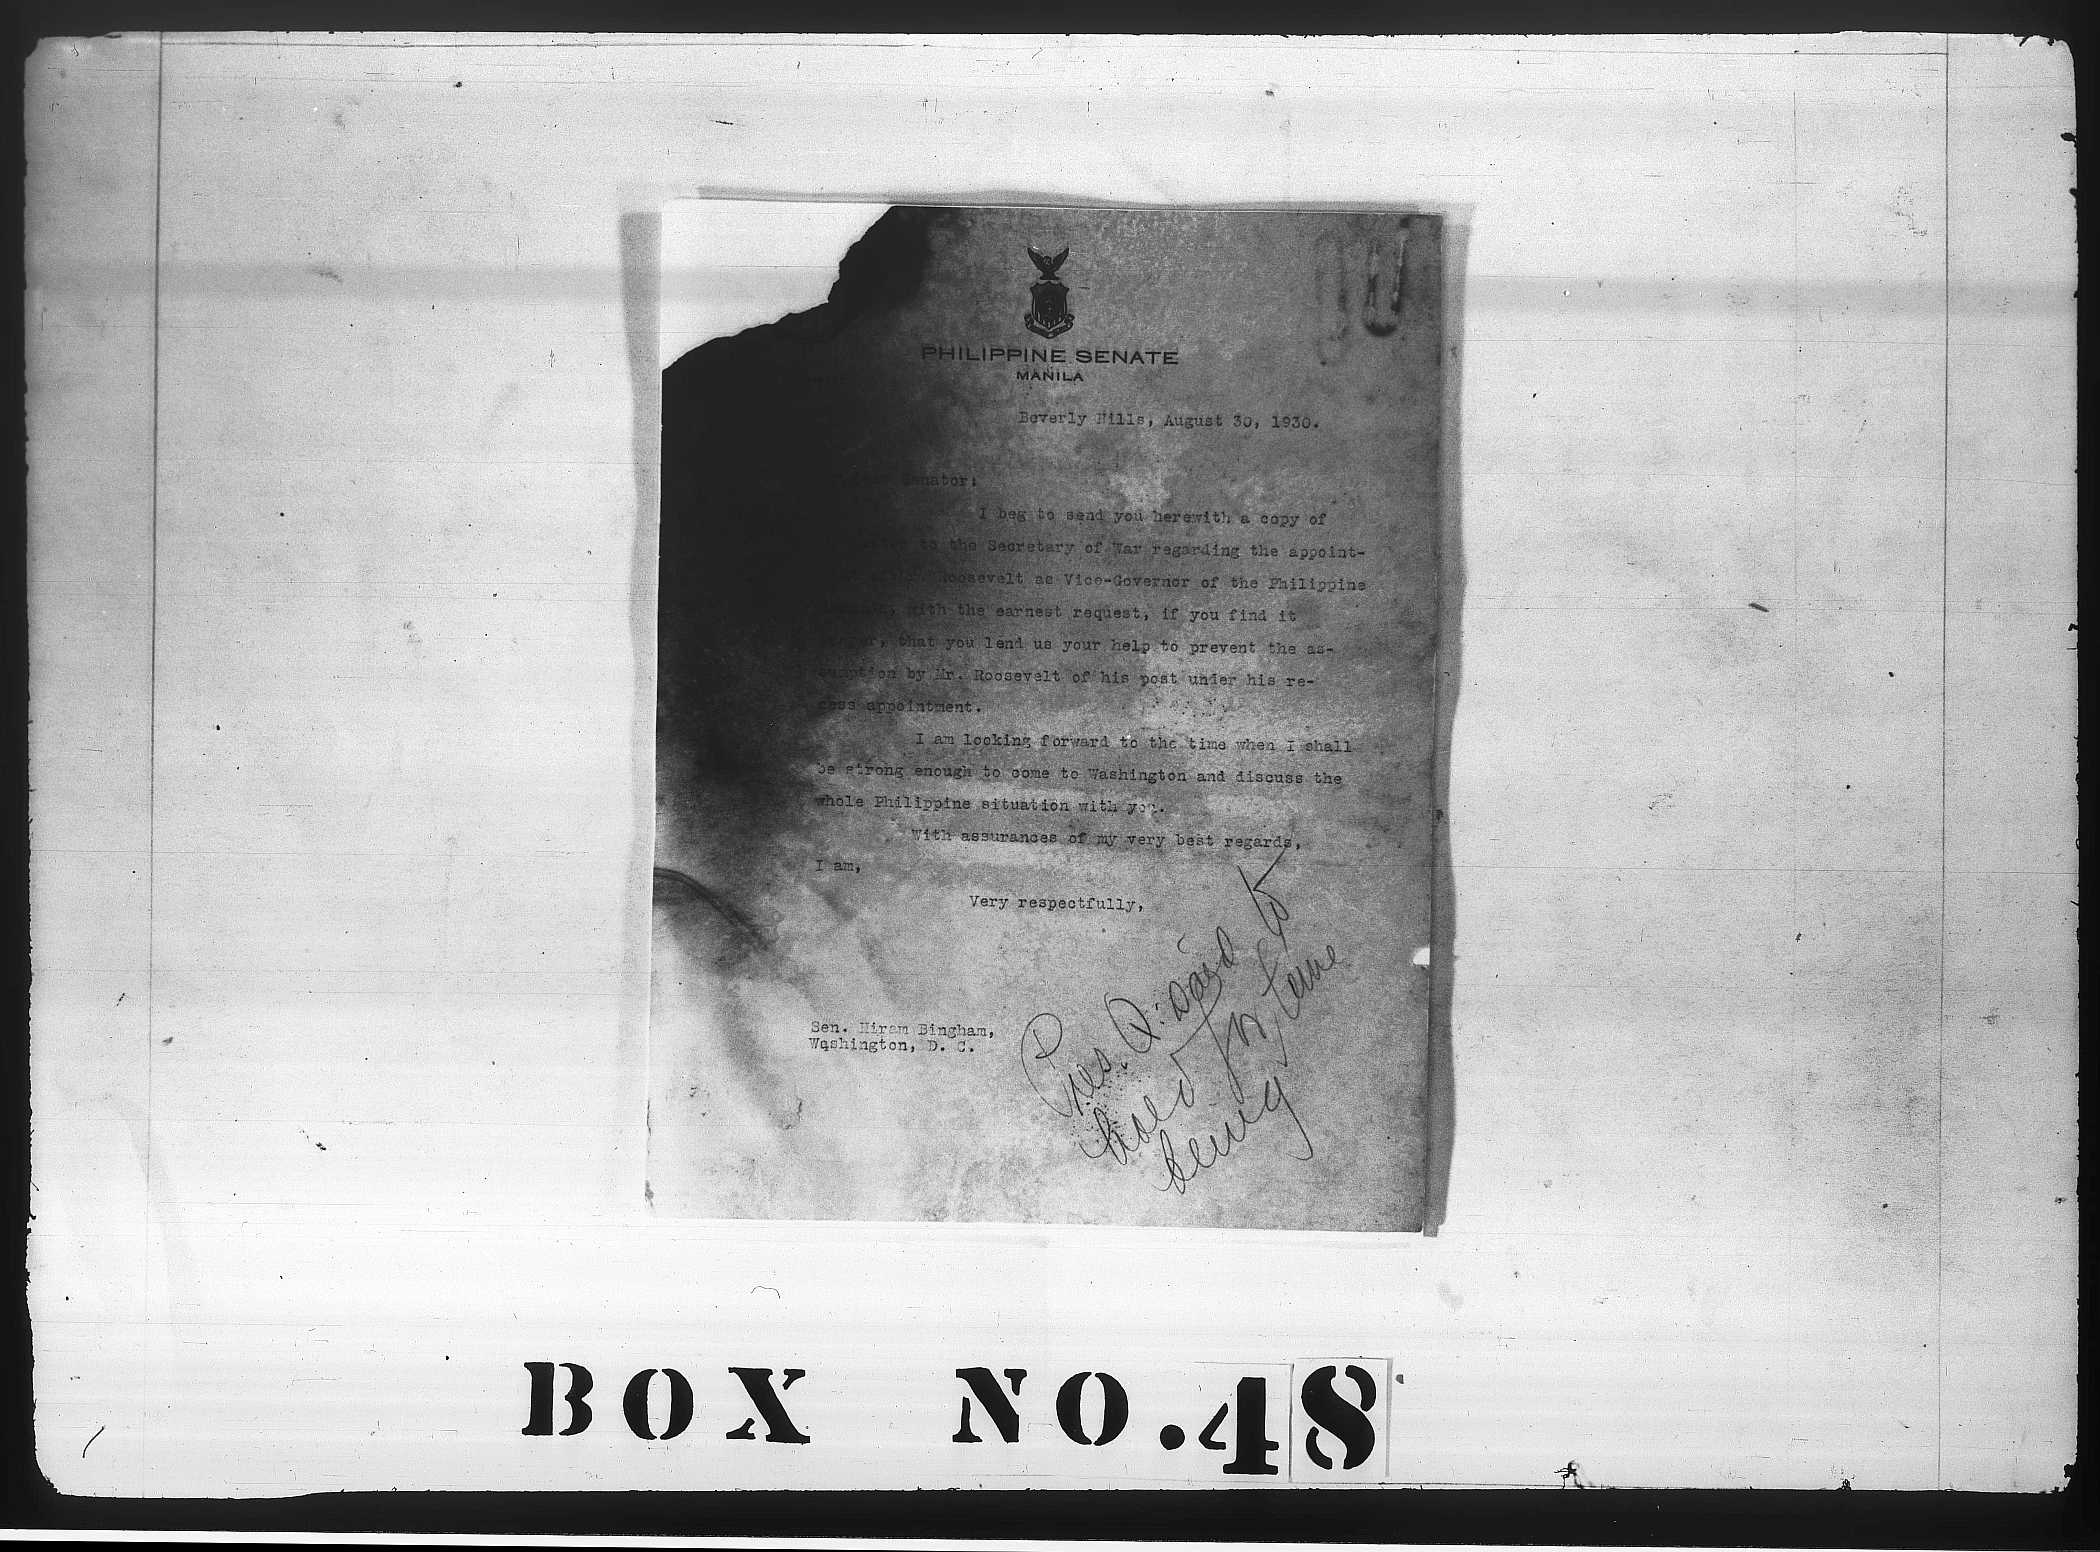 PHILIPPINE SENATE
MANILA
Beverly Hills, August 30, 1930.
Senator:
I beg to send you herewith a copy of
to the Secretary of War regarding the appoint-
Roosevelt as Vice-Governor of the Philippine
with the earnest request, if you find it
that you lend us your help to prevent the as-
sumption by Mr. Roosevelt of his post under his re-
cess appointment.
I am looking forward to the time when I shall
be strong enough to come to Washington and discuss the
whole Philippine situation with you.
With assurances of my very best regards,
I am,
Very respectfully,
Sen. Hiram Bingham,
Washington, D. C.
Pres. Q. said to
hold for time
being
BOX NO. 48